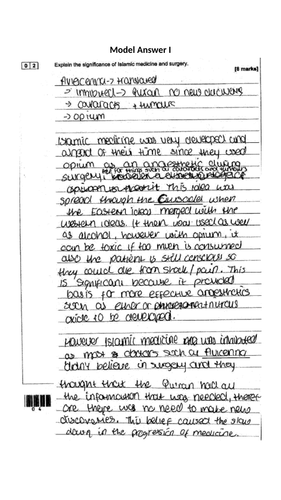 Model Answer I
0 2 Explain the significance of Islamic medicine and surgery.
[8 marks]
Avicenna → translated
→ inhibited → Quran no new discoveries
→ cataracts + tumours
→ opium
Islamic medicine was very developed and
ahead of their time since they used
opium as an anaesthetic during
but for things such as cataracts and tumours
surgery. This idea was
spread through the Crusades when
the Eastern ideas merged with the
western ideas. It then was used as well
as alcohol, however with opium, it
can be toxic if too much is consumed
and the patient is still conscious so
they could die from shock / pain. This
is significant because it provided
basis for more effective anaesthetics
such as ether or nitrous
oxide to be developed.
However Islamic medicine was inhibited
as most doctors such as Avicenna
didn't believe in surgery and they
thought that the Quran had all
the information that was needed, theref-
ore there was no need to make new
discoveries. This belief caused the slow
down in the progression of medicine.
0 4